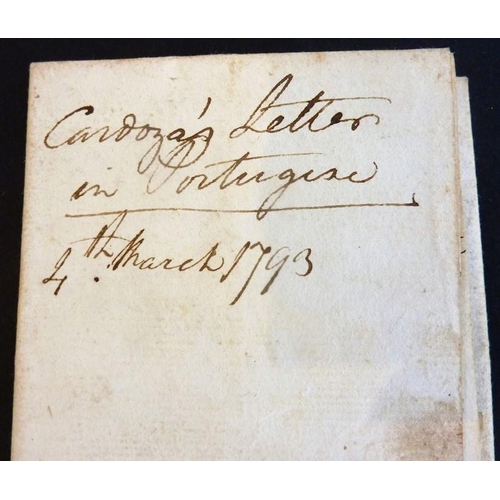 Cardoza's Letter
in Portugese
4th. March 1793